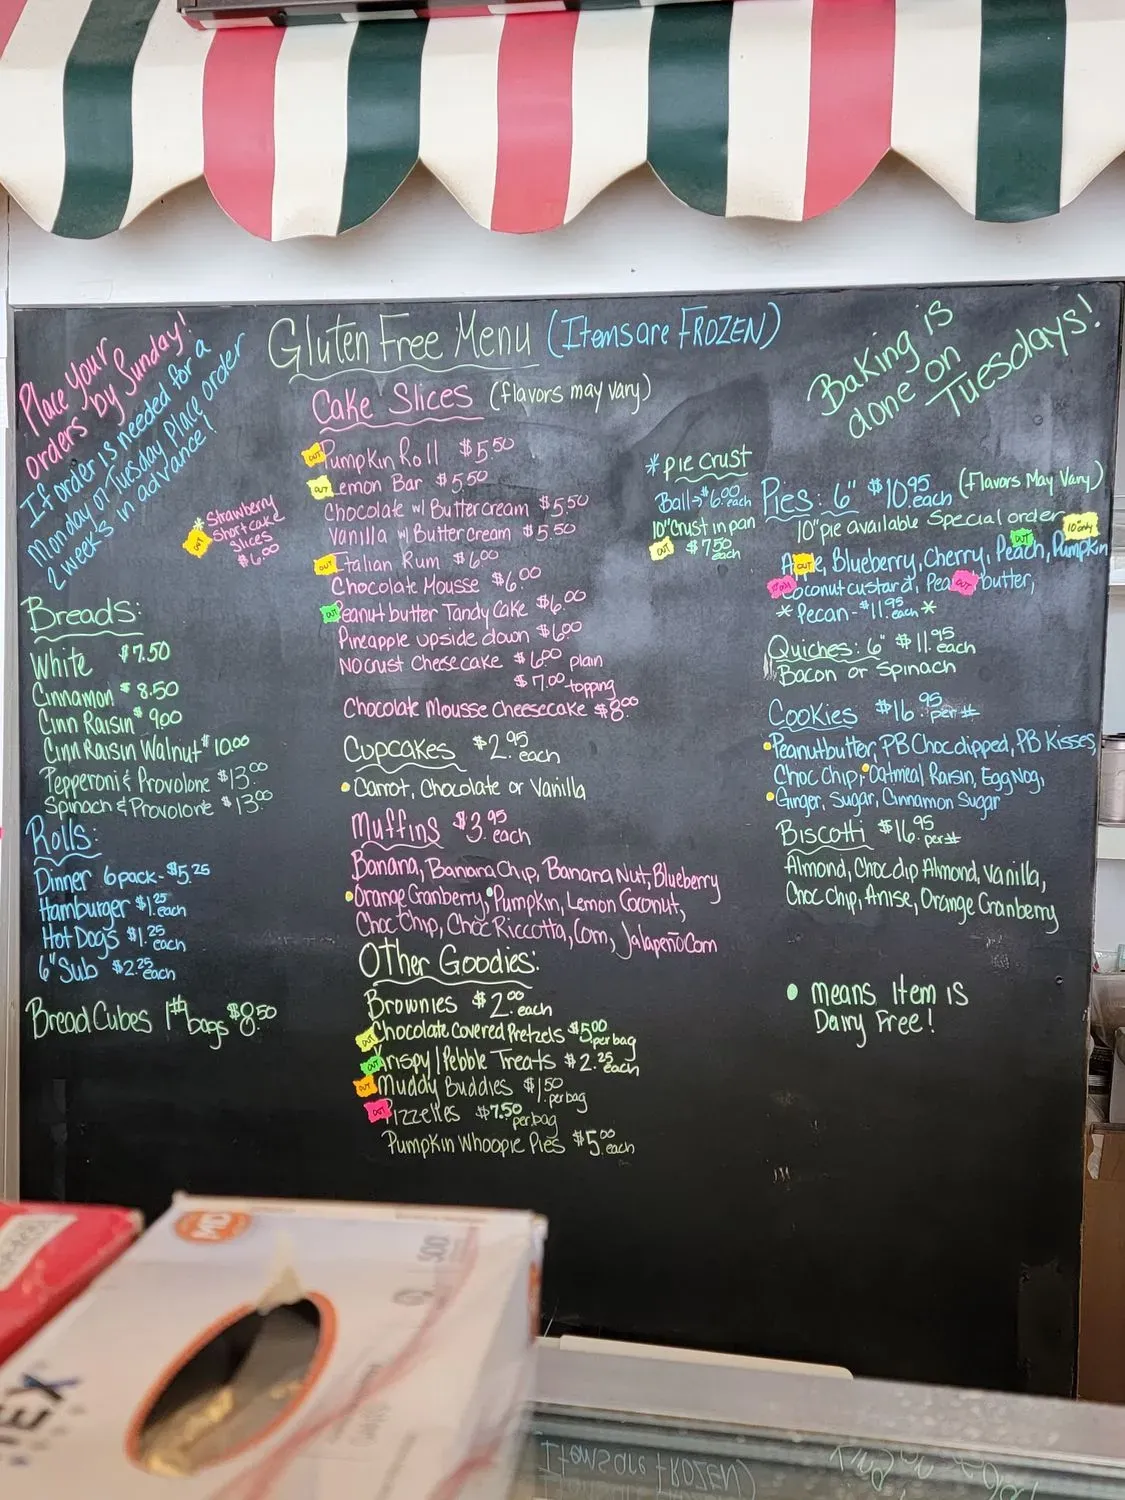 Gluten Free Menu (Items are FROZEN)
Place your
orders by Sunday!
If order is needed for a
Monday or Tuesday Place order
2 week's in advance!
Baking is
done on
Tuesdays!
* Strawberry
Shortcake
Slices
$6.00
OUT
Breads:
White $7.50
Cinnamon $8.50
Cinn Raisin $9.00
Cinn Raisin Walnut $10.00
Pepperoni & Provolone $13.00
Spinach & Provolone $13.00
Rolls:
Dinner 6 pack - $5.25
Hamburger $1.25 each
Hot Dogs $1.25 each
6" Sub $2.25 each
Bread Cubes 1# bags $8.50
Cake Slices (flavors may vary)
OUT Pumpkin Roll $5.50
OUT Lemon Bar $5.50
Chocolate w/ Buttercream $5.50
Vanilla w/ Buttercream $5.50
OUT Italian Rum $6.00
Chocolate Mousse $6.00
OUT Peanut butter Tandy Cake $6.00
Pineapple upside down $6.00
No crust Cheesecake $6.00 plain
$7.00 topping
Chocolate Mousse Cheesecake $8.00
Cupcakes $2.95 each
• Carrot, Chocolate or Vanilla
Muffins $3.95 each
Banana, Banana Chip, Banana Nut, Blueberry
• Orange Cranberry, • Pumpkin, Lemon Coconut,
Choc Chip, Choc Riccotta, Corn, Jalapeño Corn
Other Goodies:
Brownies $2.00 each
OUT Chocolate Covered Pretzels $5.00 per bag
OUT Krispy/Pebble Treats $2.25 each
OUT Muddy Buddies $1.50 per bag
OUT Pizzelles $7.50 per bag
Pumpkin Whoopie Pies $5.00 each
* Pie Crust
Ball → $6.00 each
10" Crust in pan
OUT $7.50 each
Pies: 6" $10.95 each (Flavors May Vary)
10" pie available Special order
OUT 10" only
Apple, Blueberry, Cherry, Peach, Pumpkin
OUT
Coconut custard, Peanut butter,
OUT
* Pecan - $11.95 each *
Quiches: 6" $11.95 each
Bacon or Spinach
Cookies $16.95 per #
• Peanutbutter, PB Choc dipped, PB Kisses,
Choc Chip, • Oatmeal Raisin, Egg Nog,
• Ginger, Sugar, Cinnamon Sugar
Biscotti $16.95 per #
Almond, Choc dip Almond, vanilla,
Choc Chip, Anise, Orange Cranberry
• means Item is
Dairy Free!
MD
500
TEX
Items are FROZEN)